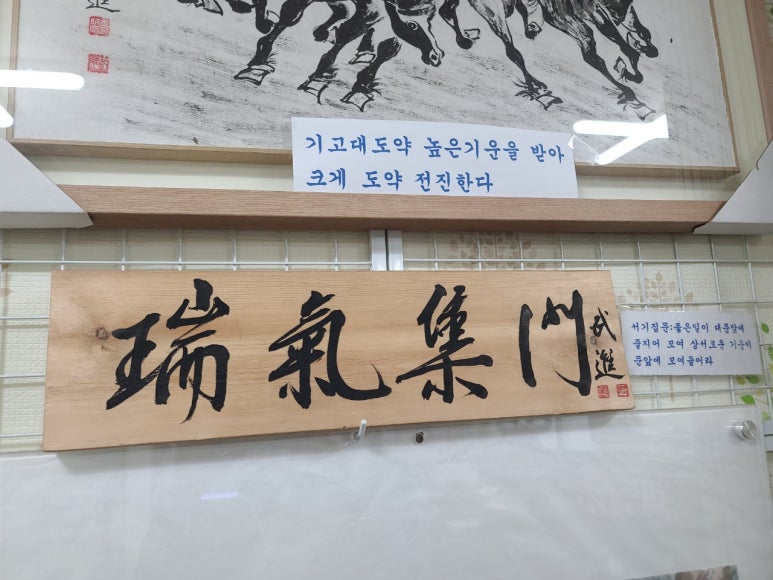 기고대도약 높은기운을 받아
크게 도약 전진한다
瑞氣集門
武進
서기집문:좋은일이 대문앞에
줄지어 모여 상서로운 기운이
문앞에 모여들어라